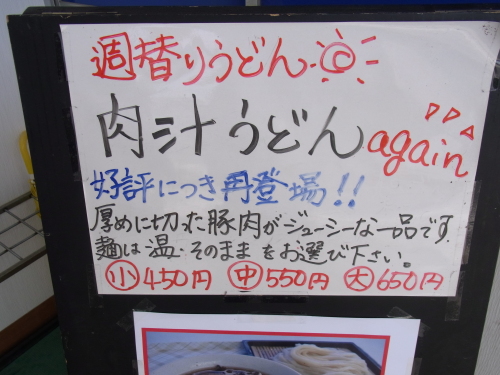 週替りうどん
肉汁うどんagain
好評につき再登場!!
厚めに切った豚肉がジューシーな一品です.
麺は温・そのままをお選び下さい。
小450円 中550円 大650円